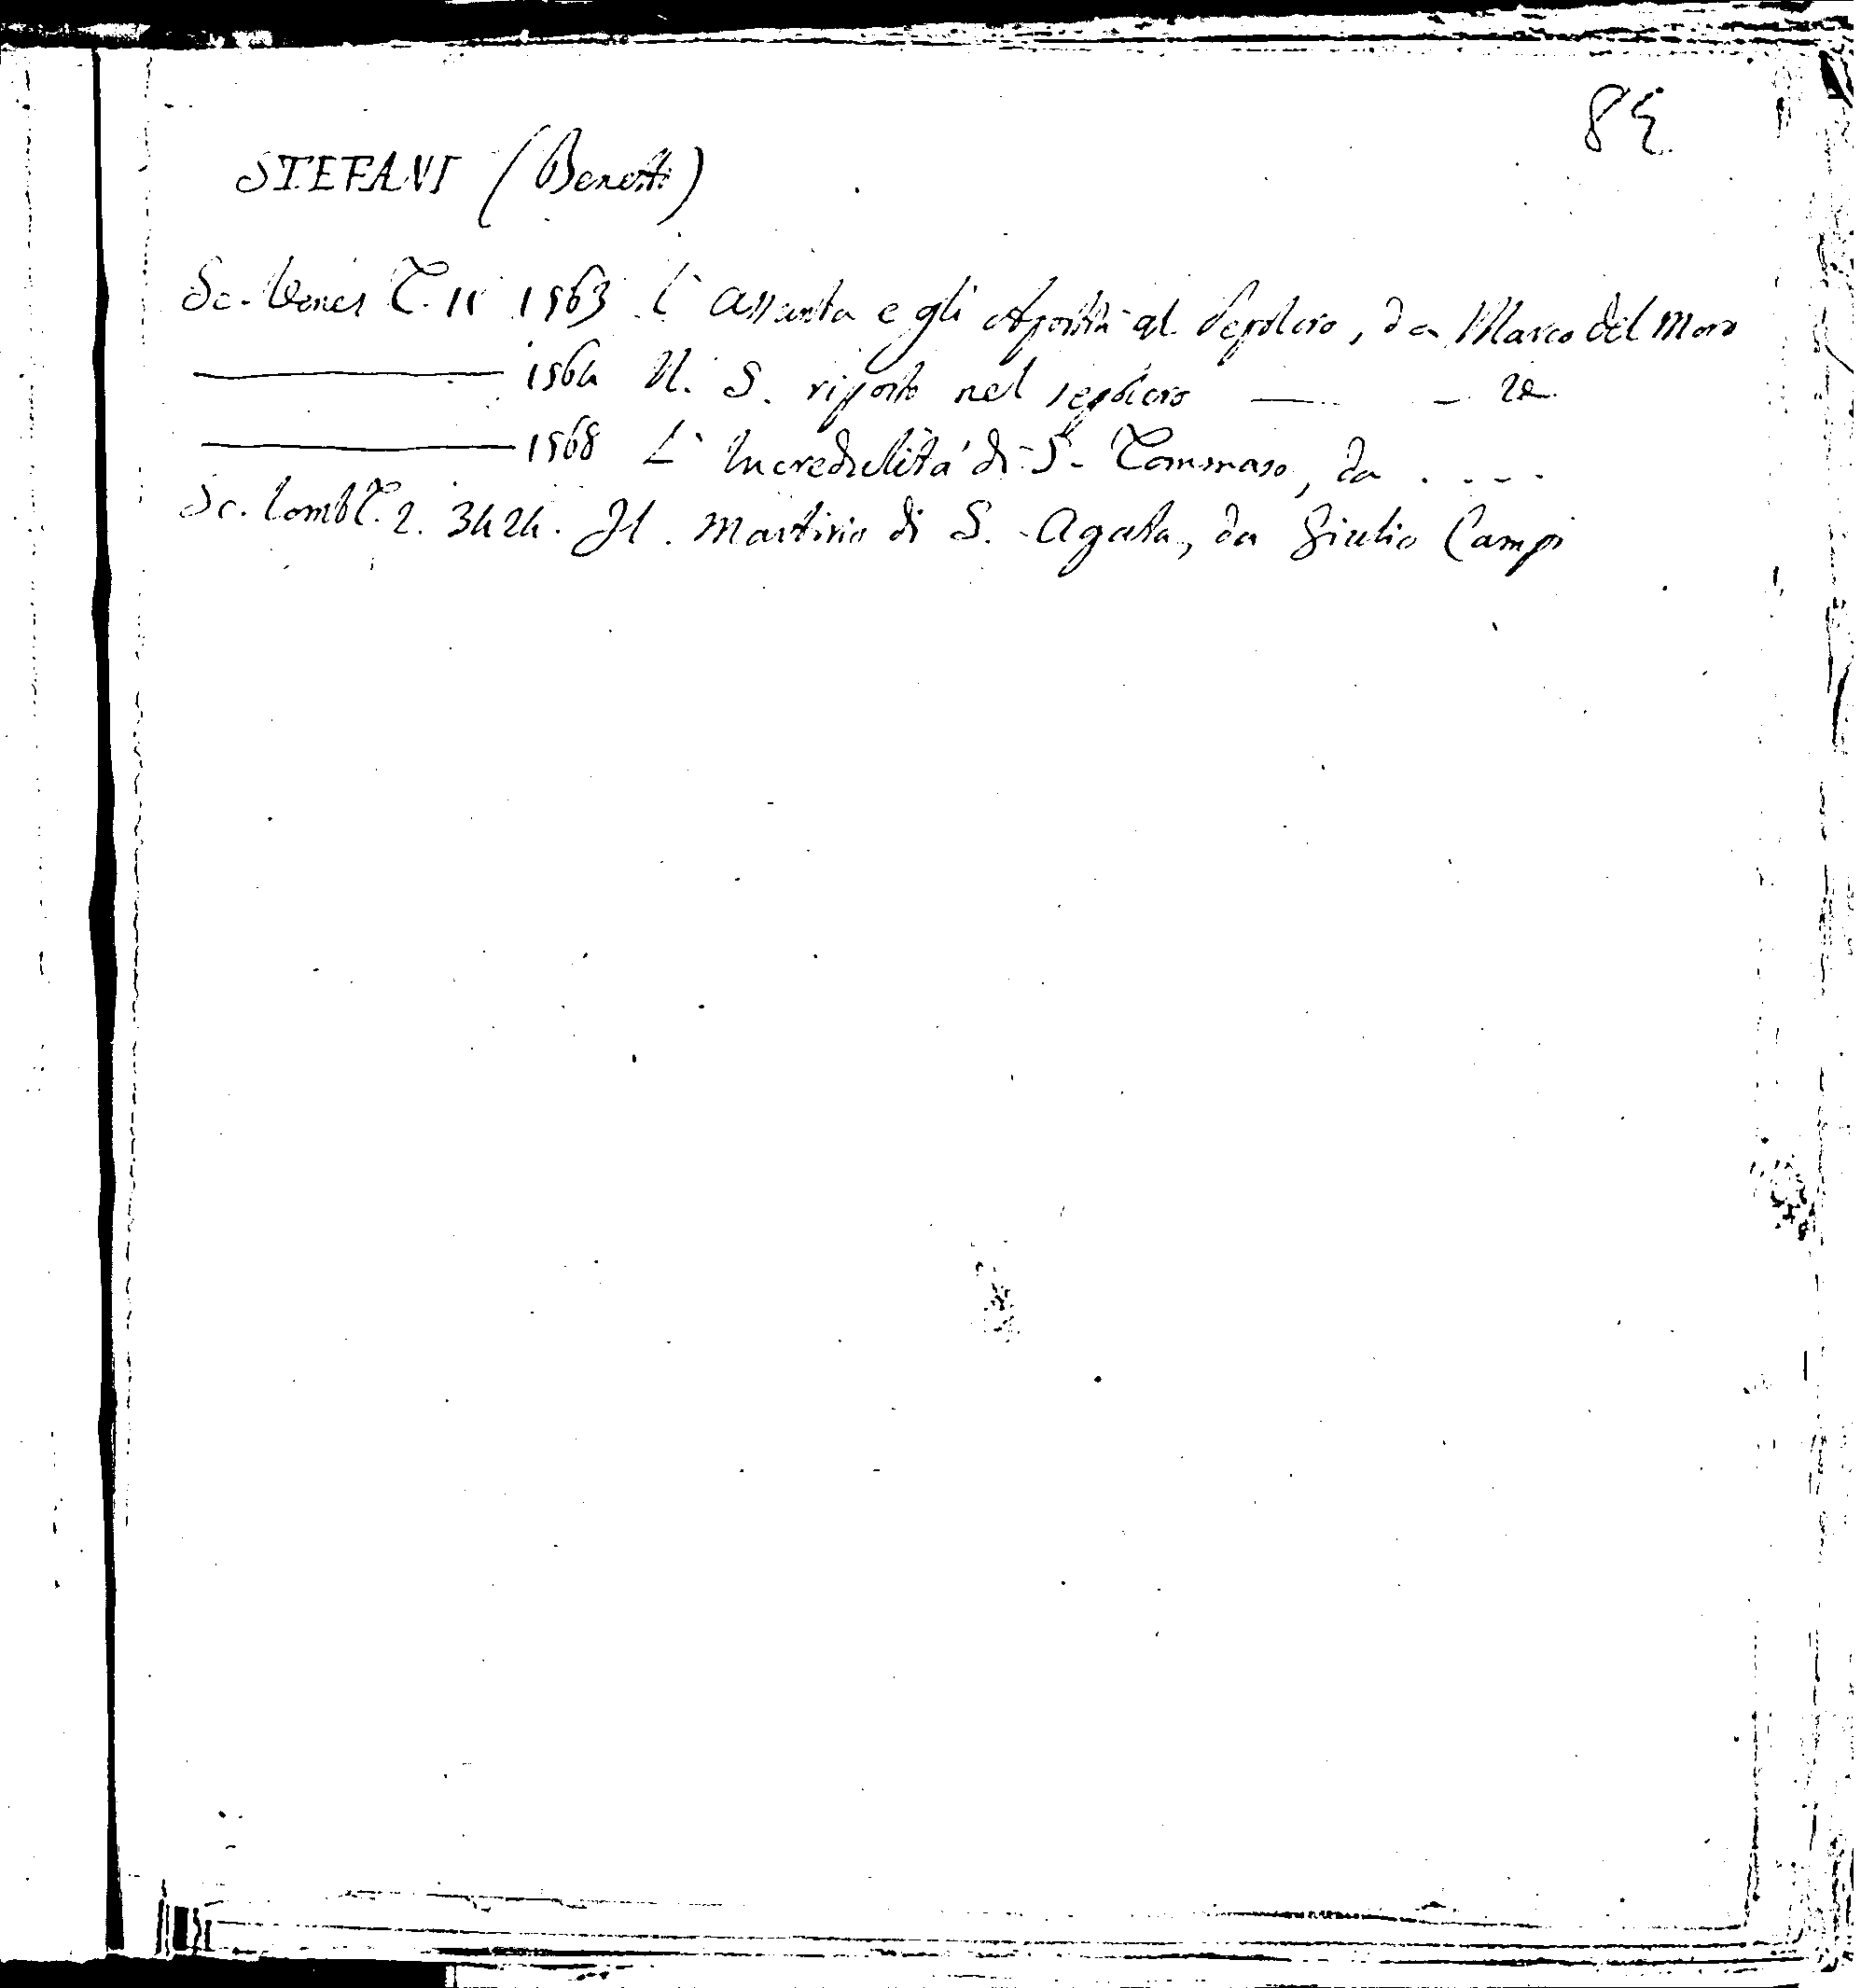 85
STEFANI (Benetto)
Sc. Venez T. II 1563 L'Assunta e gli Apostoli al Sepolcro, da Marco del Moro
1564 N. S. riposto nel sepolcro — —
1568 L'Incredulità di S. Tommaso, da . . . .
Sc. Lomb T. 2. 3424. Il Martirio di S. Agata, da Giulio Campi